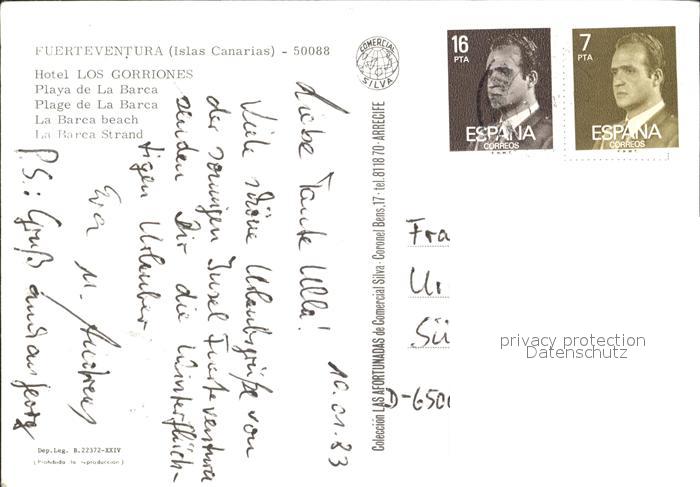 FUERTEVENTURA (Islas Canarias) - 50088
Hotel LOS GORRIONES
Playa de La Barca
Plage de La Barca
La Barca beach
La Barca Strand
COMERCIAL
SILVA
16
PTA
ESPAÑA
CORREOS
7
PTA
ESPAÑA
CORREOS
10.01.83
Liebe Tante Ulla!
Viele schöne Urlaubsgrüße von
der sonnigen Insel Fuerteventura
senden Dir die Winterflüch-
tigen Urlauber
Eva u. Andreas
P.S.: Gruß an Hansjeorg
Colección LAS AFORTUNADAS de Comercial Silva · Coronel Bens, 17 · tel. 81 18 70 · ARRECIFE
Fra
Ur
Sü
D-650
privacy protection
Datenschutz
Dep.Leg. B.22372-XXIV
(Prohibida la reproducción)